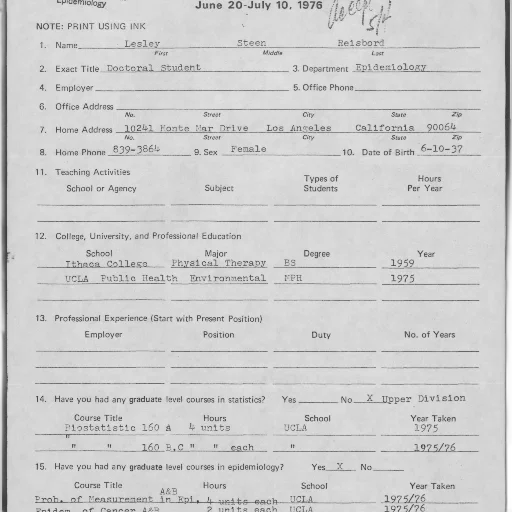 Epidemiology
June 20-July 10, 1976
NOTE: PRINT USING INK
1. Name Lesley Steen Reisbord
First Middle Last
2. Exact Title Doctoral Student 3. Department Epidemiology
4. Employer 5. Office Phone
6. Office Address
No. Street City State Zip
7. Home Address 10241 Monte Mar Drive Los Angeles California 90064
No. Street City State Zip
8. Home Phone 839-3864 9. Sex Female 10. Date of Birth 6-10-37
11. Teaching Activities
School or Agency Subject Types of Students Hours Per Year
12. College, University, and Professional Education
School Major Degree Year
Ithaca College Physical Therapy BS 1959
UCLA Public Health Environmental MPH 1975
13. Professional Experience (Start with Present Position)
Employer Position Duty No. of Years
14. Have you had any graduate level courses in statistics? Yes No X Upper Division
Course Title Hours School Year Taken
Biostatistic 160 A 4 units UCLA 1975
"
" " 160 B,C " " each " 1975/76
15. Have you had any graduate level courses in epidemiology? Yes X No
Course Title Hours School Year Taken
A&B
Prob. of Measurement in Epi. 4 units each UCLA 1975/76
Epidem. of Cancer A&B 2 units each UCLA 1975/76